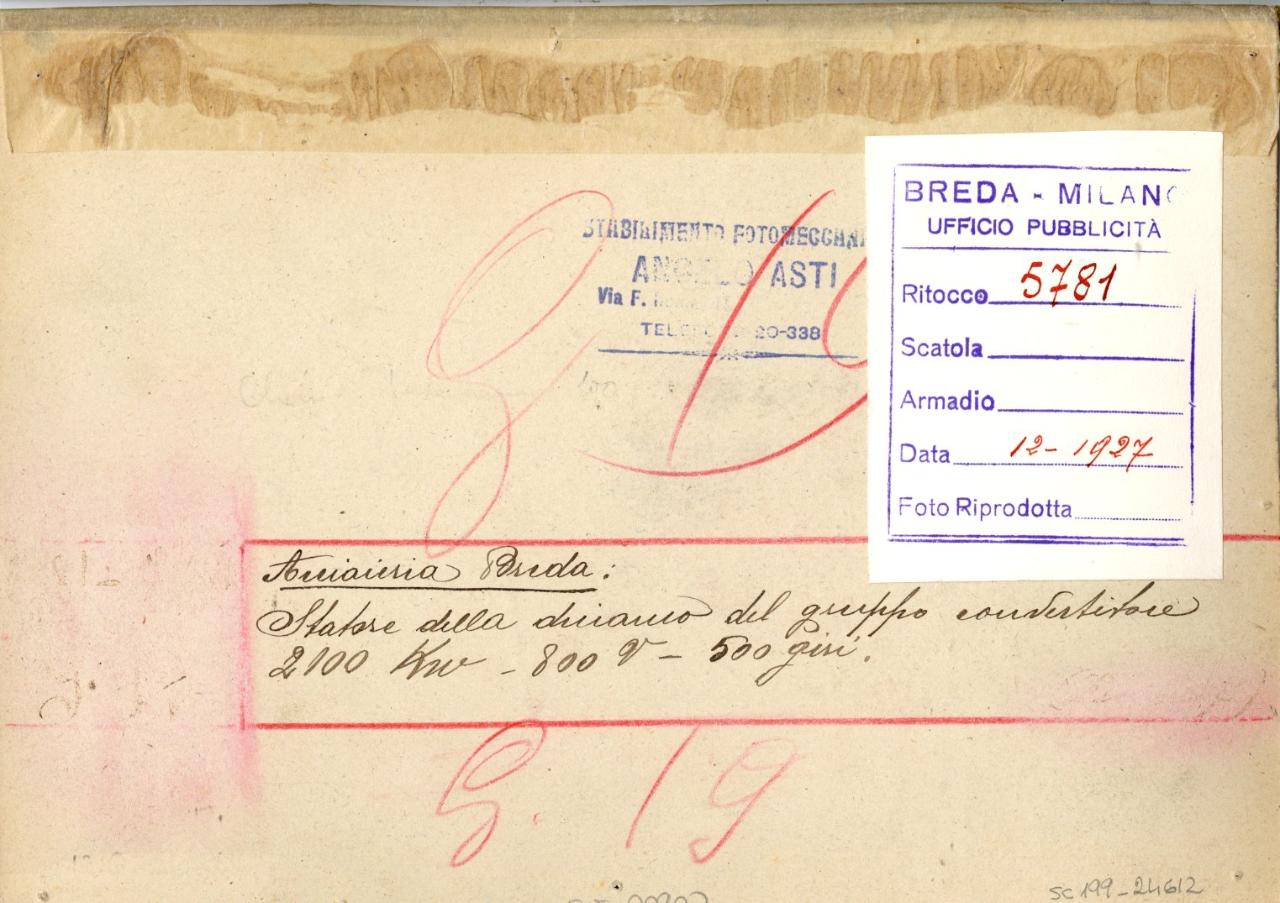 STABILIMENTO FOTOMECCANI
ANGELO ASTI
Via F.
TELEF 20-338
BREDA - MILANO
UFFICIO PUBBLICITÀ
Ritocco 5781
Scatola
Armadio
Data 12-1927
Foto Riprodotta
Acciaieria Breda:
Statore della dinamo del gruppo convertitore
2100 Kw - 800 V - 500 giri.
G. 19
SC199_24612